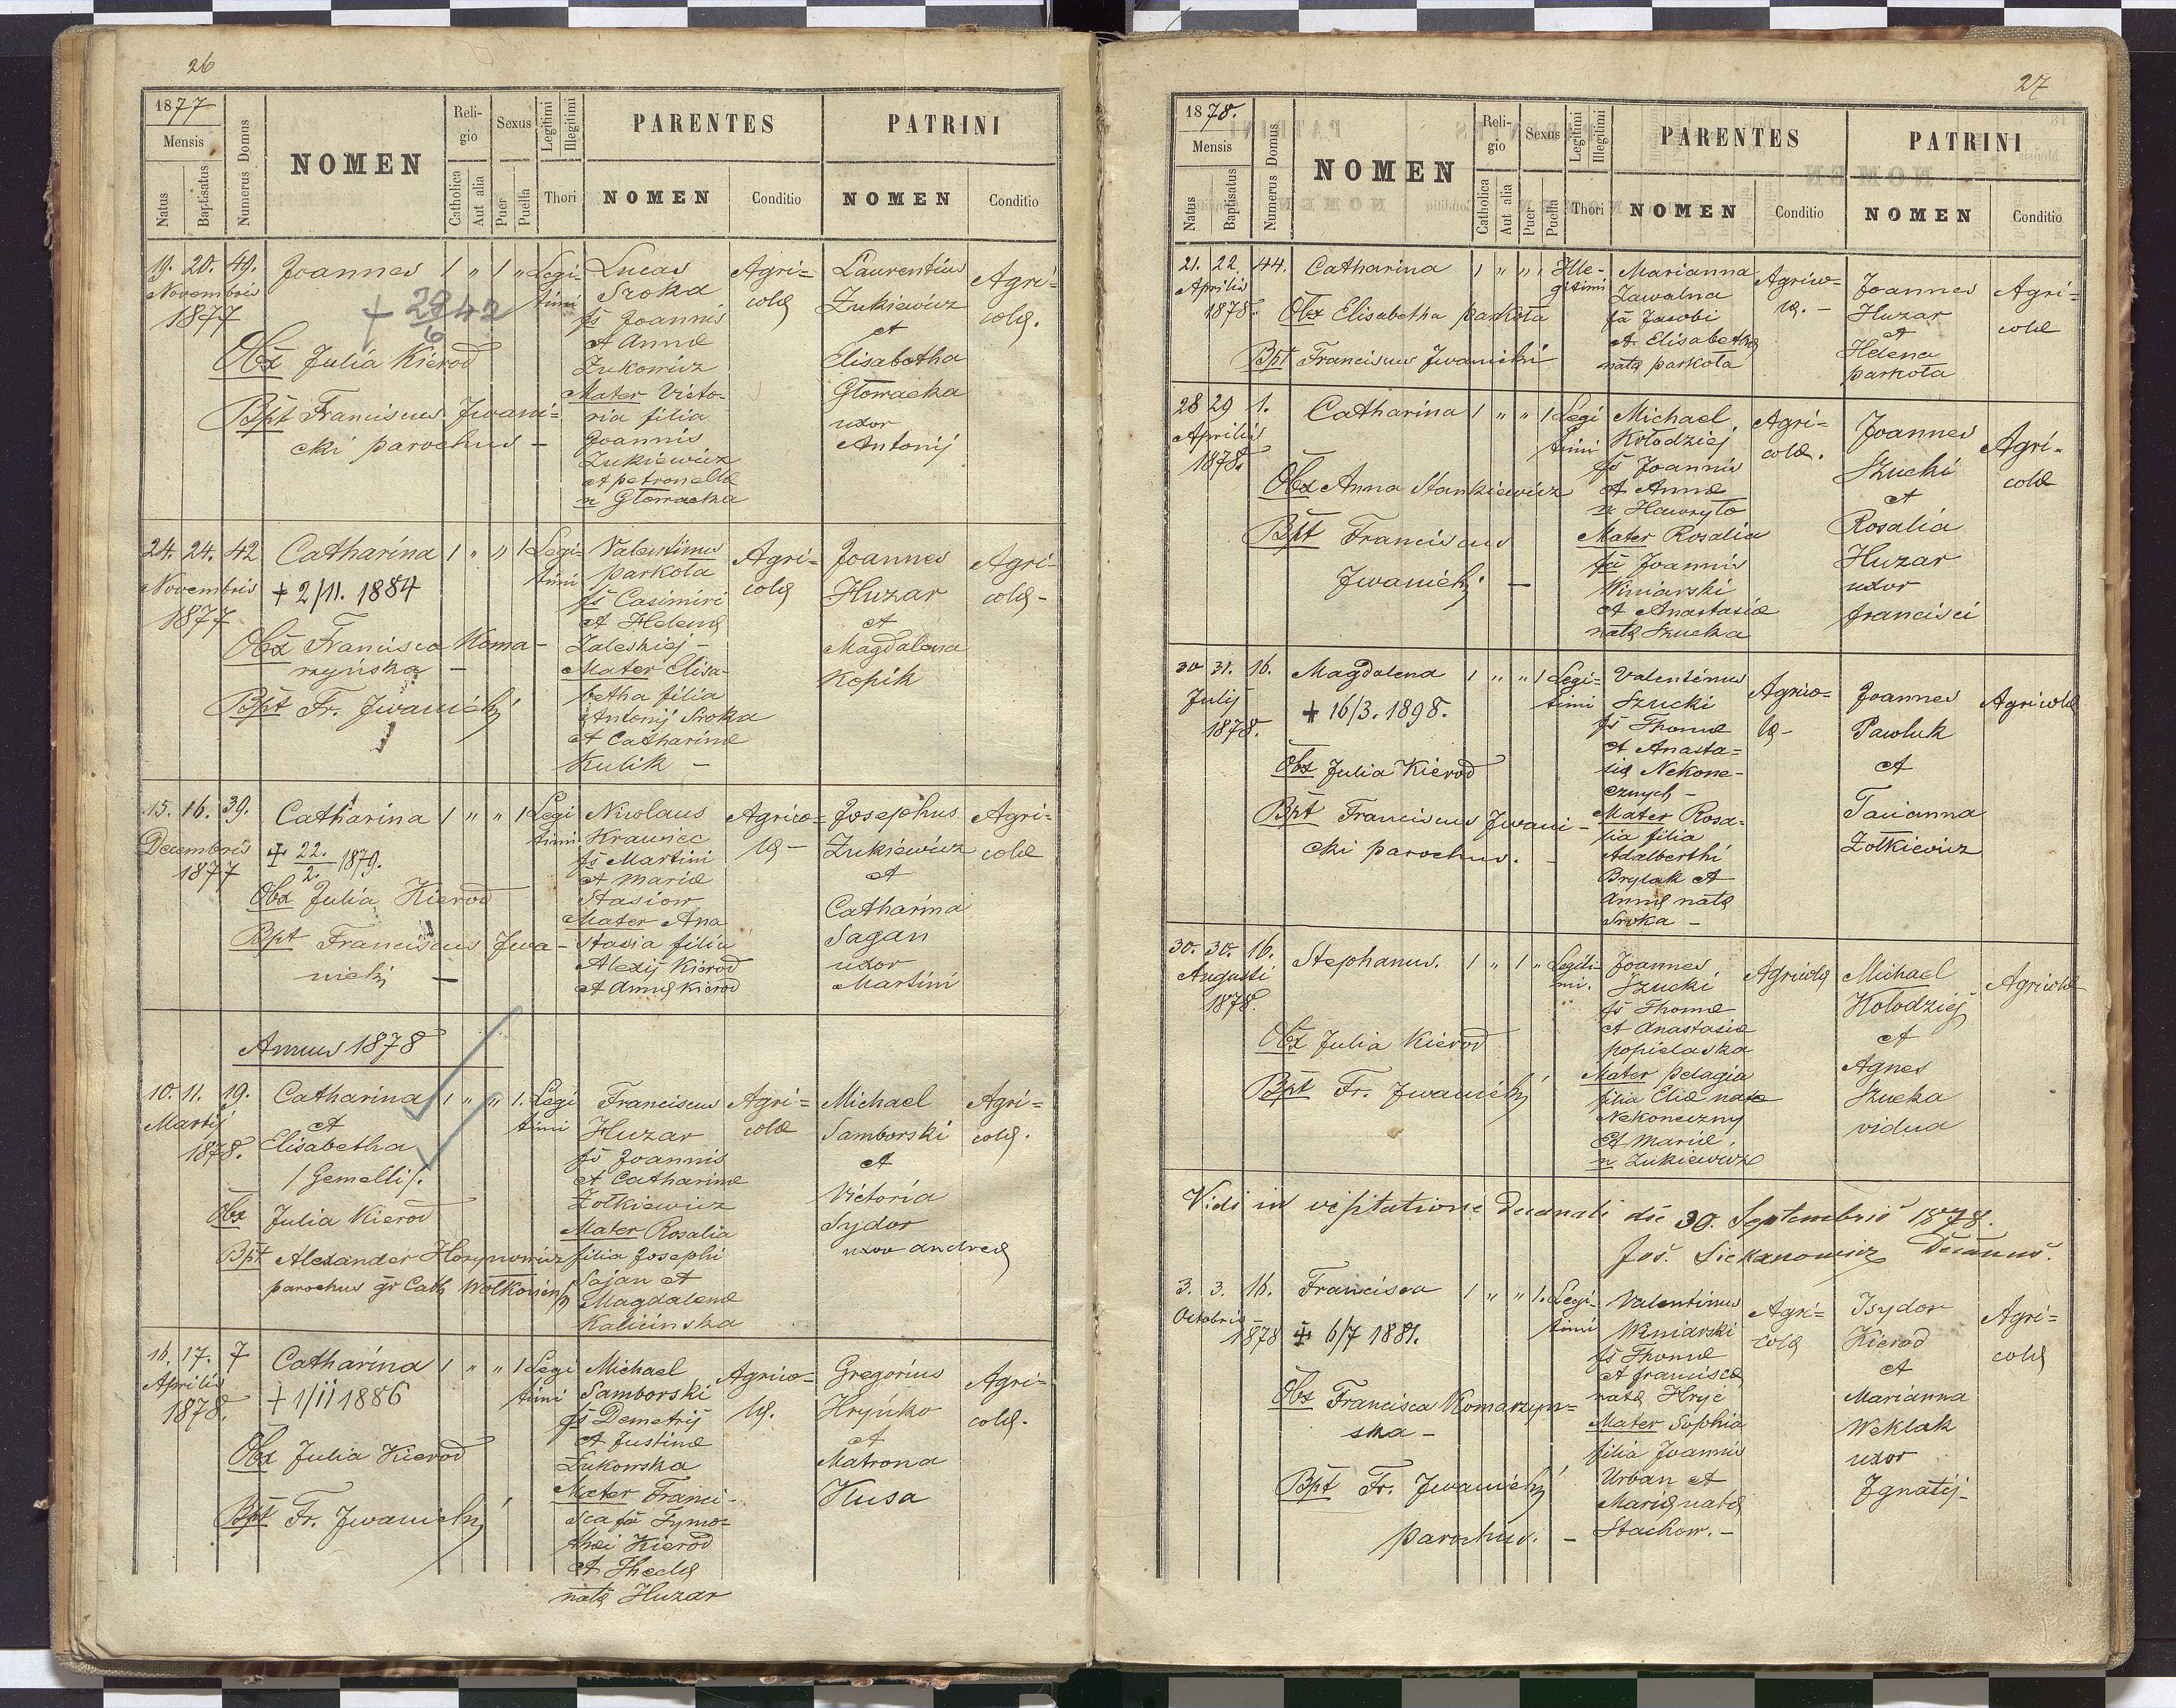 26
1877
Mensis
Natus
Baptisatus
Numerus Domus
NOMEN
Reli-
gio
Catholica
Aut alia
Sexus
Puer
Puella
Legitimi
Illegitimi
Thori
PARENTES
NOMEN
Conditio
PATRINI
NOMEN
Conditio
19. 20. 49.
Novembris
1877
Joannes 1 " 1 "
Obx Julia Kierod
Bpt Franciscus Jwani=
cki parochus -
Legi-
timi
Lucas
Sroka
fs Joannis
et Annæ
Zukowicz
Mater Victo-
ria filia
Joannis
Zukiewicz
et petronellæ
n Głowacka
Agri=
colæ
Laurentius
Zukiewicz
et
Elisabetha
Głowacka
uxor
Antonij
Agri-
colæ.
24. 24. 42
Novembris
1877
Catharina 1 " " 1
+ 2/11. 1884
Obx Francisca Koma-
rzyńska -
Bpt Fr. Jwanicki
Legi-
timi
Valentinus
parkota
fs Casimiri
et Helenæ
Zaleskiej -
Mater Elisa-
betha filia
Antonij Sroka
et Catharinæ
Kulik -
Agri-
colæ
Joannes
Huzar
et
Magdalena
Kopik
Agri-
colæ-
15. 16. 39.
Decembris
1877
Catharina 1 " " 1
+ 22./2. 1879.
Obx Julia Kierod
Bpt Franciscus Jwa-
nicki -
Legi
timi
Nicolaus
Krawiec
fs Martini
et Mariæ
Stasiow
Mater Ana
stasia filia
Alexij Kierod
et Annæ Kierod
Agrico-
læ-
Josephus
Zukiewicz
et
Catharina
Sagan
uxor
Martini
Agri-
colæ
Annus 1878
10. 11. 19.
Martij
1878.
Catharina 1 " " 1.
et
Elisabetha
/Gemelli/.
Obx Julia Kierod
Bpt Alexander
parochus gr Cath
Legi
timi
Franciscus
Huzar
fs Joannis
et Catharinæ
Zołkiewicz
Mater Rosalia
filia Josephi
Sajan et
Magdalenæ
Kalicinska
Agri=
colæ
Michael
Samborski
et
Victoria
Sydor
uxor andreæ
Agri=
colæ.
16. 17. 7
Aprilis
1878.
Catharina 1 " " 1
+ 1/11 1886
Obx Julia Kierod
Bpt Fr. Jwanicki
Legi
timi
Michael
Samborski
fs Demetrij
et Justinæ
Zukowska
Mater Franci-
sca fa Tymo-
thei Kierod
et Theclæ
natæ Huzar
Agrico-
læ.
Gregorius
Hryńko
et
Matrona
Kusa
Agri-
colæ.
27
1878.
Mensis
Natus
Baptisatus
Numerus Domus
NOMEN
Reli-
gio
Catholica
Aut alia
Sexus
Puer
Puella
Legitimi
Illegitimi
Thori
PARENTES
NOMEN
Conditio
PATRINI
NOMEN
Conditio
21. 22. 44.
Aprilis
1878.
Catharina 1 " " 1
Obx Elisabetha parkota
Bpt Franciscus Jwanicki
Ille-
gitimi
Marianna
Zawalna
fa Jacobi
et Elisabethæ
natæ parkota
Agrico-
læ. -
Joannes
Huzar
et
Helena
parkota
Agri-
colæ
28 29 1.
Aprilis
1878.
Catharina 1 " " 1
Obx Anna Stankiewicz
Bpt Franciscus
Jwanicki -
Legi
timi
Michael
Kołodziej
fs Joannis
et Annæ
n. Hawryło
Mater Rosalia
fa Joannis
Winiarski
et Anastasiæ
natæ Szucka
Agri-
colæ.
Joannes
Szucki
et
Rosalia
Huzar
uxor
francisci
Agri-
colæ
30 31. 16.
Julij
1878.
Magdalena 1 " " 1
+ 16/3. 1898.
Obx Julia Kierod
Bpt Franciscus Jwani-
cki parochus. -
Legi-
timi
Valentinus
Szucki
fs Thomæ
et Anasta=
siæ Nekone-
cznych -
Mater Rosa-
lia filia
Adalberthi
Brylak et
Annæ natæ
Sroka -
Agrico-
læ-
Joannes
Pawluk
et
Tacianna
Zołkiewicz
Agricolæ
30. 30. 16.
Augusti
1878.
Stephanus. 1 " 1 "
Obx Julia Kierod
Bpt Fr. Jwanicki
Legiti
mi.
Joannes
Szucki
fs Thomæ
et Anastasiæ
popielaska
Mater pelagia
filia Eliæ natæ
Nekoneczny
et Mariæ.
n Zukiewicz
Agricolæ
Michael
Kołodziej
et
Agnes
Szucka
vidua
Agricolæ
Vidi in visitatione Decanali die 30. Septembris 1878.
Jos. Siekanowicz Decanus.
3. 3. 16.
Octobris
1878
Francisca 1 " " 1.
+ 6/7 1881.
Obx Francisca Komarzyn=
ska -
Bpt Fr. Jwanicki
parochus. -
Legi-
timi
Valentinus
Winiarski
fs Thomæ
et franciscæ
natæ Hryć
Mater Sophia
filia Joannis
Urban et
Mariæ natæ
Stachow. -
Agri=
colæ
Isydor
Kierod
et
Marianna
Weklak
uxor
Ignatij-
Agri-
colæ